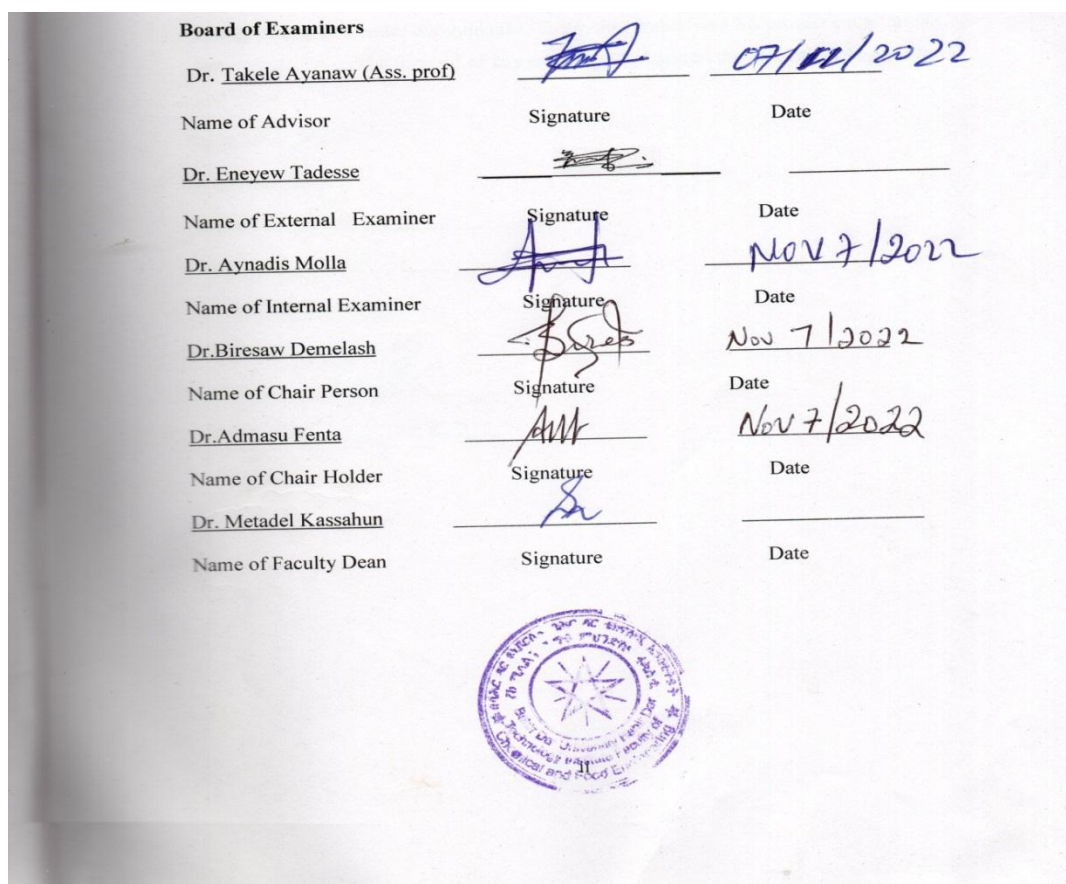 Board of Examiners
Dr. Takele Ayanaw (Ass. prof) 07/11/2022
Name of Advisor Signature Date
Dr. Eneyew Tadesse
Name of External Examiner Signature Date
Dr. Aynadis Molla NOV 7/2022
Name of Internal Examiner Signature Date
Dr.Biresaw Demelash Nov 7/2022
Name of Chair Person Signature Date
Dr.Admasu Fenta Nov 7/2022
Name of Chair Holder Signature Date
Dr. Metadel Kassahun
Name of Faculty Dean Signature Date
Bahir Dar University Bahir Dar
Technology Institute Faculty of
Chemical and Food Engineering
II